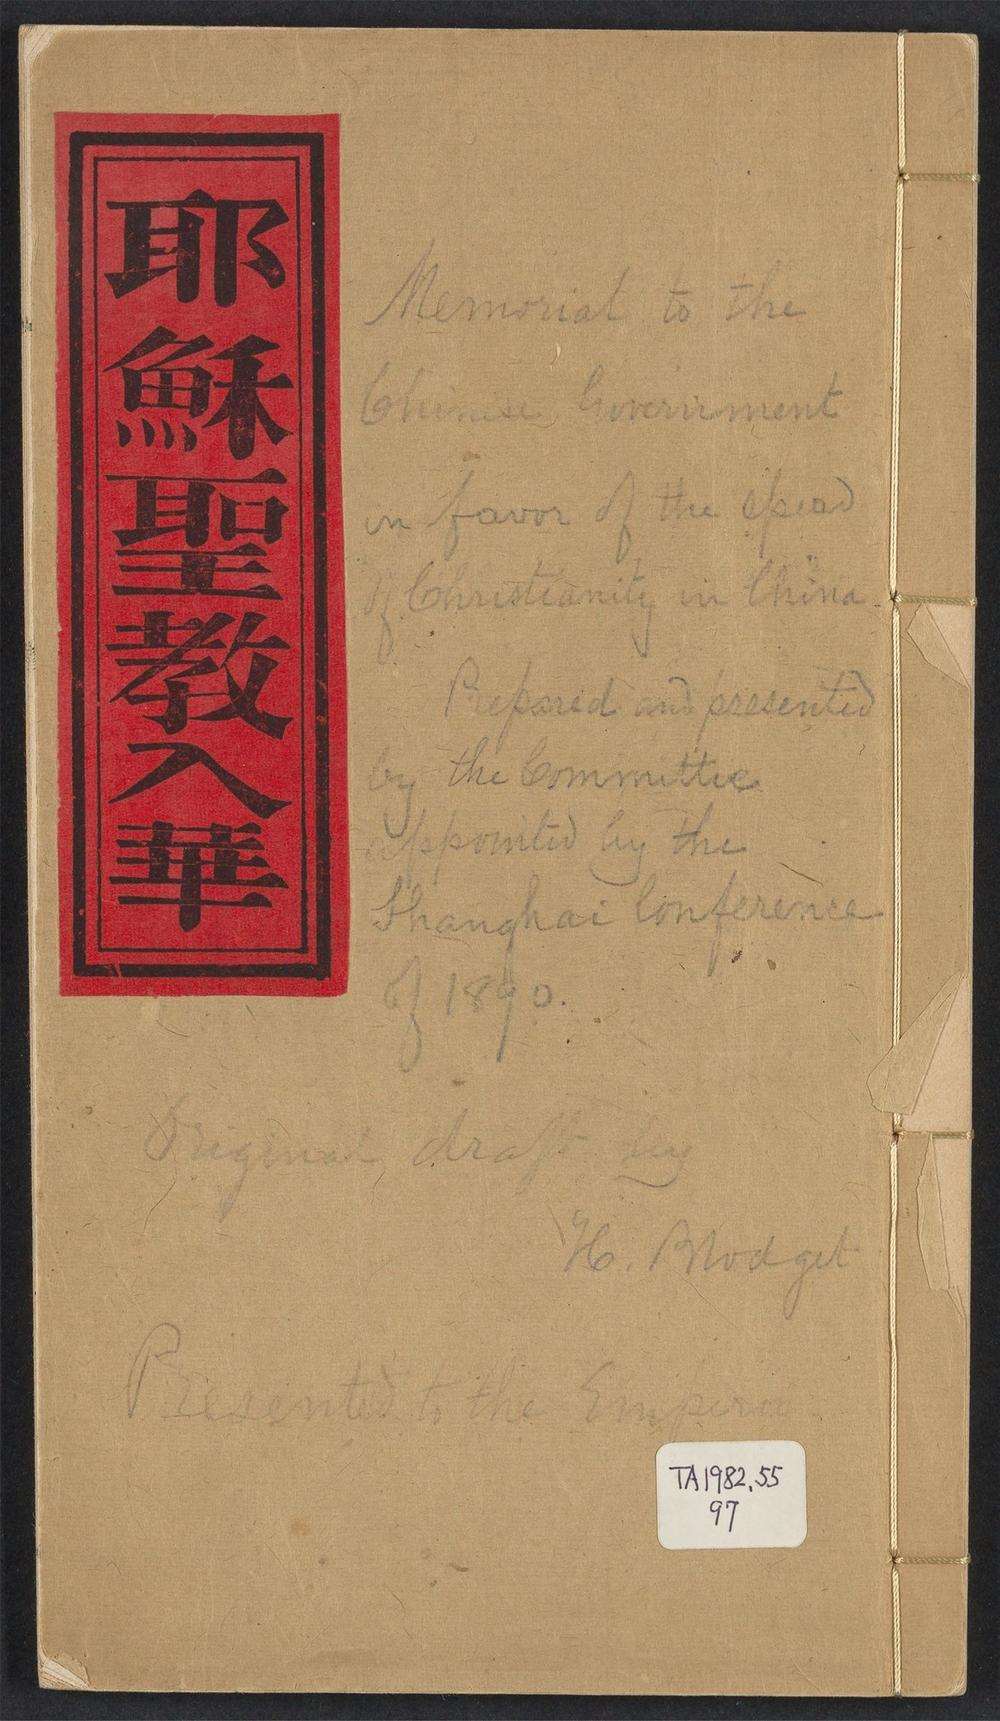 耶穌聖教入華
Memorial to the
Chinese Government
in favor of the spead
of Christianity in China.
Prepared and presented
by the Committee
appointed by the
Shanghai Conference
of 1890.
Original draft by
H. Blodget
Presented to the Emperor
TA1982.55
97